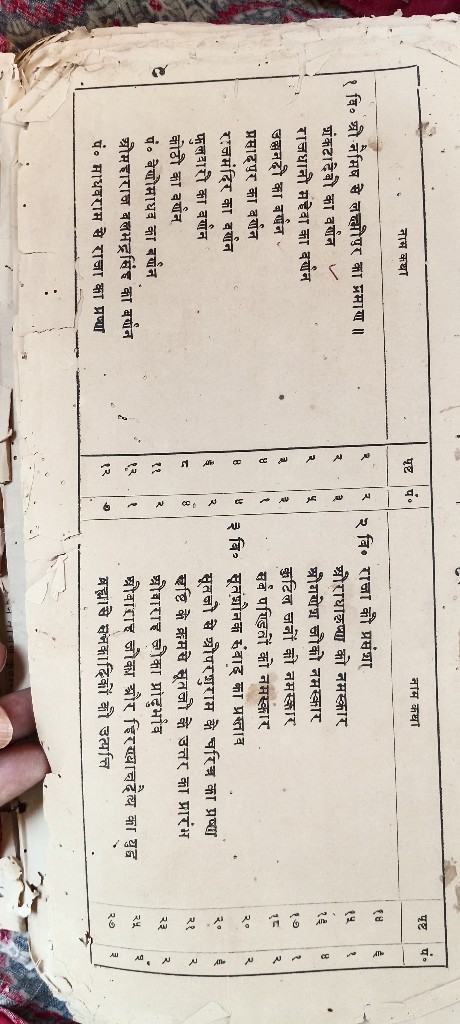 नाम कथा पृष्ट पं०
१ वि० श्री नैमिष से लक्ष्मीपुर का प्रमाण ॥ २ २
प्रकटादेवी का वर्णन २ ३
राजधानी महेवा का वर्णन २ ५
उल्लनदी का वर्णन ३ ३
प्रसादपुर का वर्णन ४ १
राजमंदिर का वर्णन ४ ४
फुलवारी का वर्णन ६ २
कोठी का वर्णन ८ ४
पं० वेणीमाधव का वर्णन ११ २
श्रीमहाराज बलभद्रसिंह का वर्णन १२ १
पं० माधवराम से राजा का प्रष्ण १२ ७
नाम कथा पृष्ट पं०
२ वि० राजा की प्रसंशा १४ ६
श्रीराधाकृष्ण को नमस्कार १५ १
श्रीगणेश जीको नमस्कार १६ ४
कुटिल जनों को नमस्कार १७ १
सर्व पण्डितों को नमस्कार १८ २
३ वि० सूतशौनक संवाद का प्रस्ताव २० २
सूतजी से श्रीपरशुराम के चरित्र का प्रष्ण २० ६
सृष्टि के क्रमसे सूतजी के उत्तर का प्रारंभ २१ २
श्रीवाराह जीका प्रादुर्भाव २३ २
श्रीवाराह जीका और हिरण्याक्षदैत्य का युद्ध २५ ५
ब्रह्मासे सनकादिकों की उत्पत्ति २७ ३